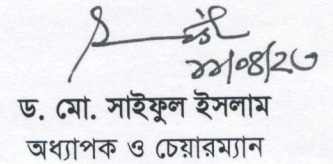 ২২/০৪/২৩
ড. মো. সাইফুল ইসলাম
অধ্যাপক ও চেয়ারম্যান